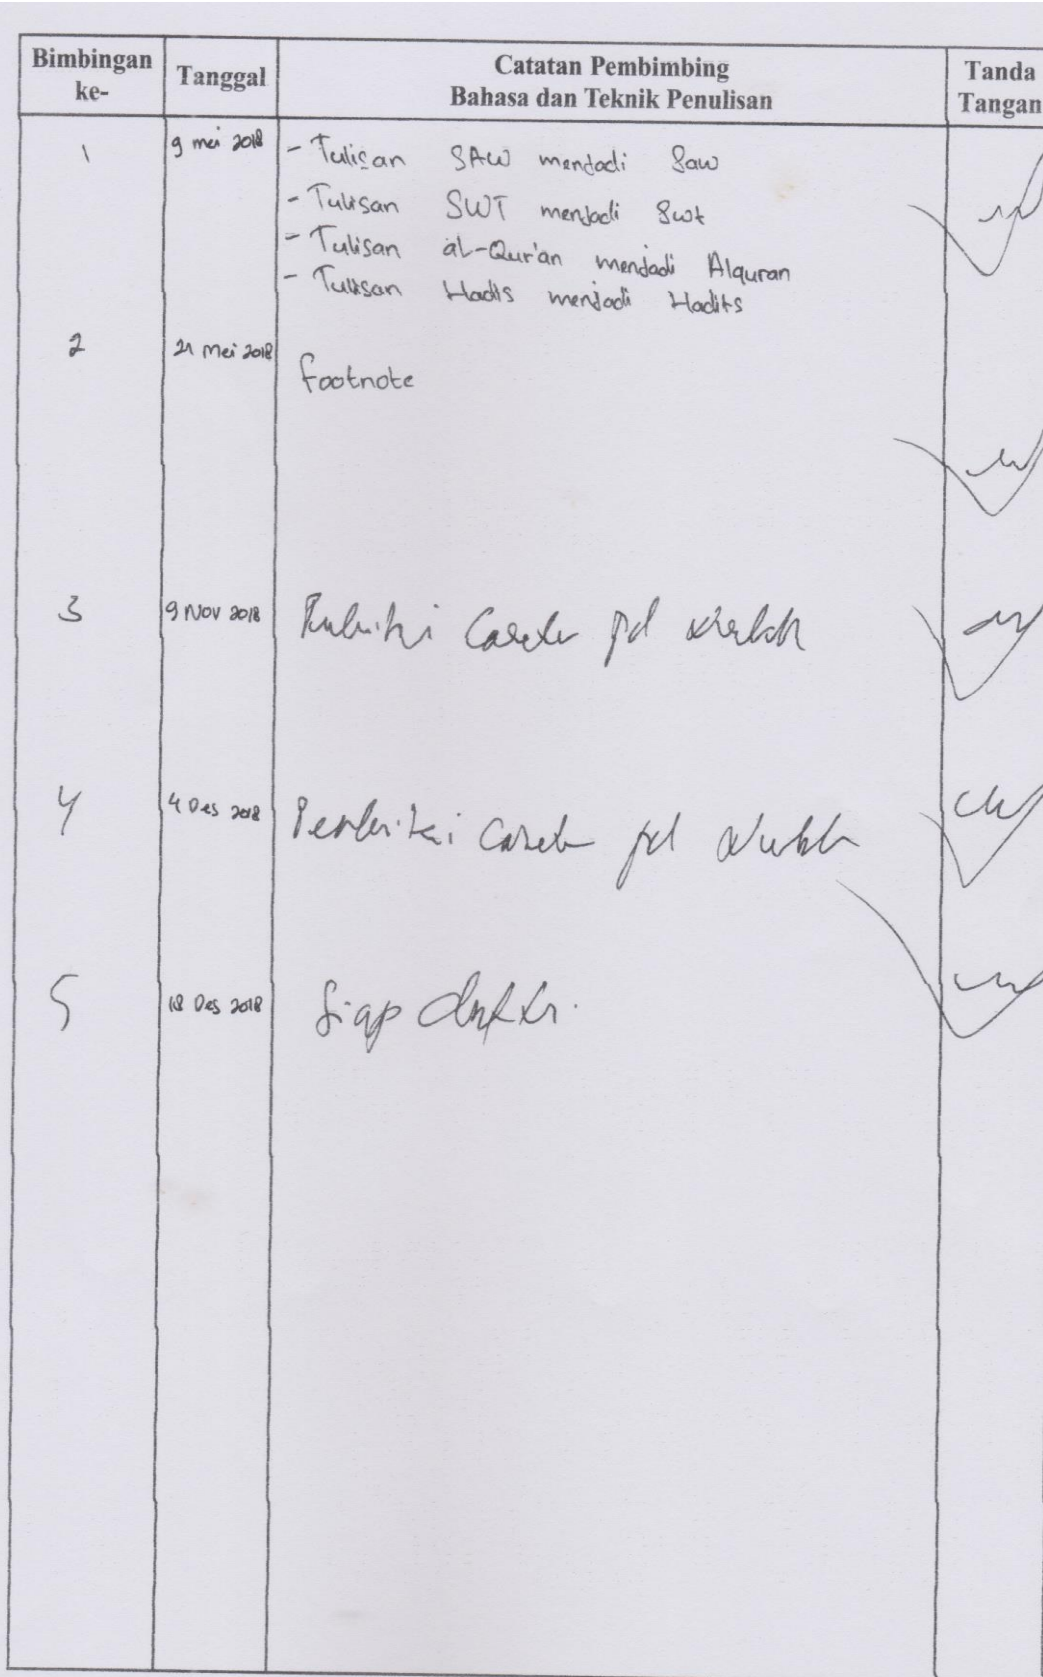 Bimbingan ke-
Tanggal
Catatan Pembimbing
Bahasa dan Teknik Penulisan
Tanda Tangan
1
9 mei 2018
- Tulisan SAW menjadi Saw
- Tulisan SWT menjadi Swt
- Tulisan al-Qur'an menjadi Alquran
- Tulisan Hadis menjadi Hadits
2
21 mei 2018
footnote
3
9 Nov 2018
pd
4
4 Des 2018
pd
5
18 Des 2018
Siap